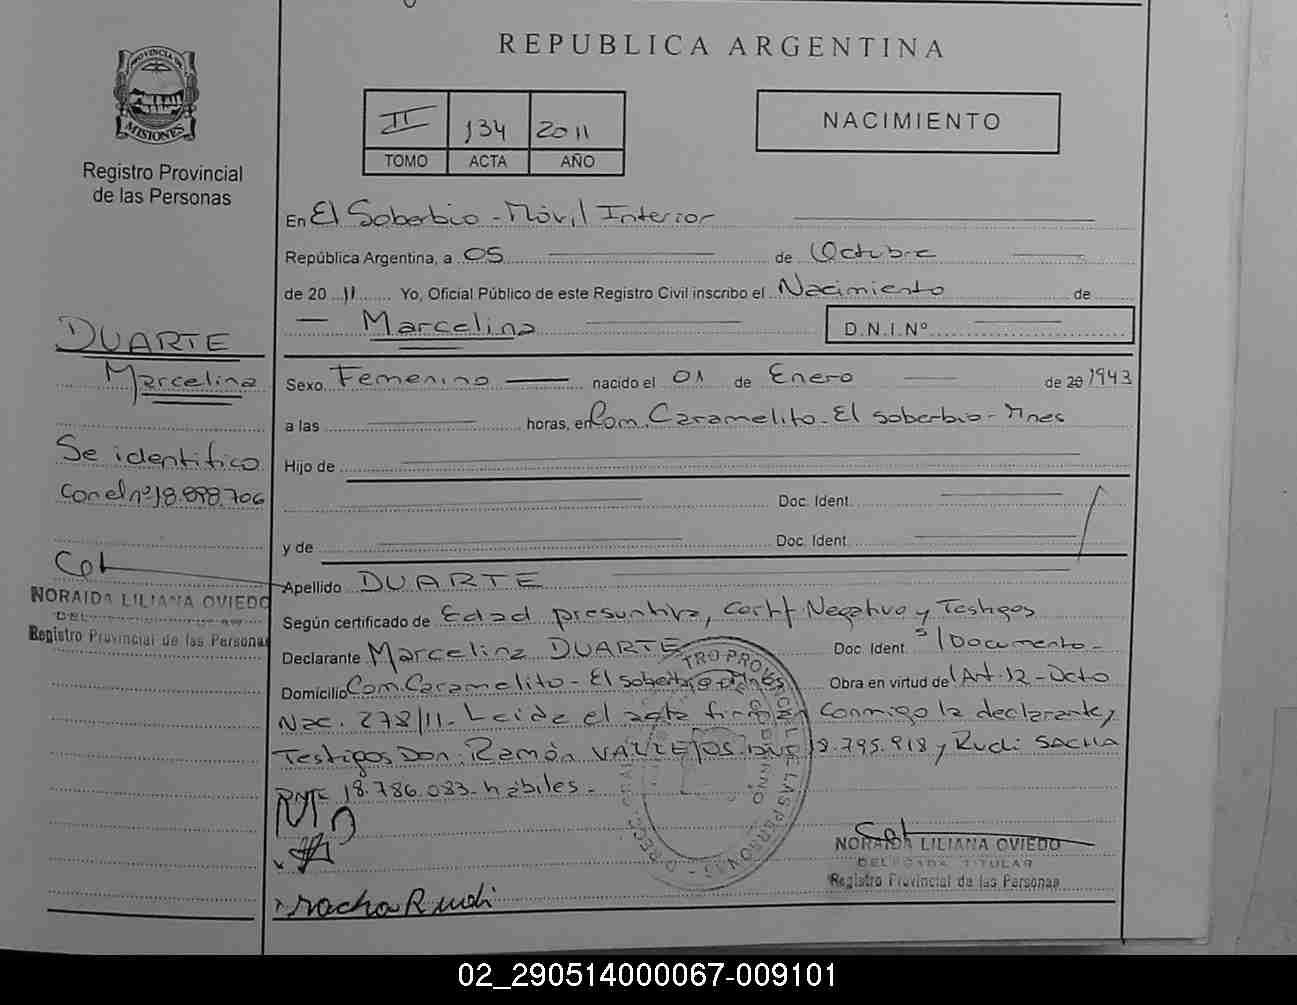 REPUBLICA ARGENTINA
PROVINCIA DE
MISIONES
Registro Provincial
de las Personas
II 134 2011
TOMO ACTA AÑO
NACIMIENTO
En El Soberbio - Móvil Interior
República Argentina, a 05 de Octubre
de 20 11 Yo, Oficial Público de este Registro Civil inscribo el Nacimiento de
Marcelina D.N.I.Nº
DUARTE
Marcelina
Se identifico
con el nº 18.898.706
NORAIDA LILIANA OVIEDO
Registro Provincial de las Personas
Sexo Femenino nacido el 01 de Enero de 20 1943
a las horas, en Com. Caramelito - El soberbio - Mnes
Hijo de
Doc. Ident.
y de Doc. Ident.
Apellido DUARTE
Según certificado de Edad presuntiva, Certf Negativo y Testigos
Declarante Marcelina DUARTE Doc. Ident. S/Documento -
Domicilio Com. Caramelito - El soberbio - Mnes Obra en virtud de Art. 12 - Dcto
Nac. 278/11 - Leida el acta firman conmigo la declarante,
Testigos Don: Ramón VALLEJOS DNI 18.795.918 y Rudi SACHA
18.786.083 - hábiles.
Rudi
NORAIDA LILIANA OVIEDO
DELEGADA TITULAR
Registro Provincial de las Personas
02_290514000067-009101